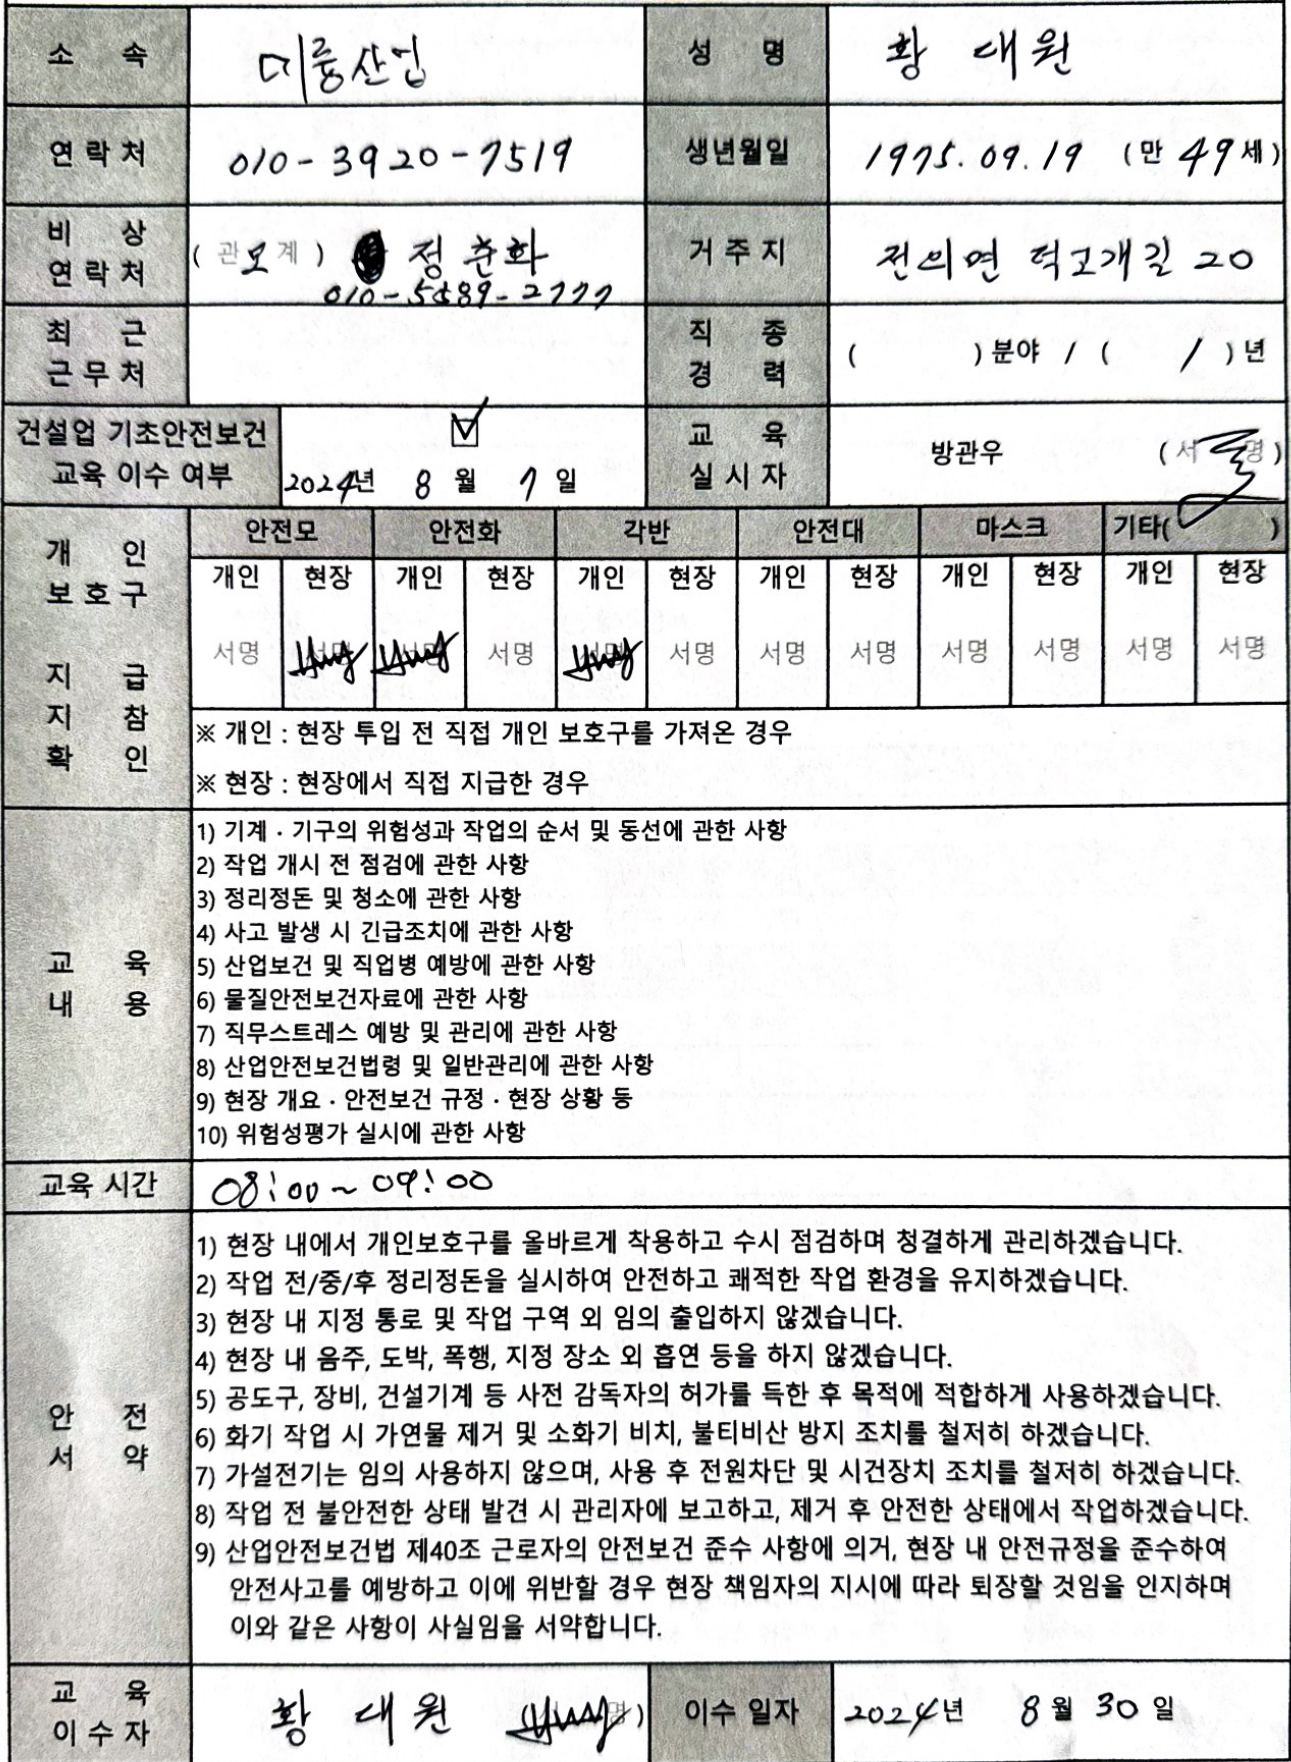 소 속 미룡산업 성 명 황 대원
연 락 처 010-3920-7519 생년월일 1975.09.19 (만 49세)
비 상 연 락 처 (관계) 모 정춘화 010-5589-2777 거 주 지 전의면 덕고개길 20
최 근 근 무 처 직 종 경 력 ( )분야 / ( / )년
건설업 기초안전보건 교 육 방관우 (서명)
교육 이수 여부 2024년 8월 7일 실 시 자
개 인 안전모 안전화 각반 안전대 마스크 기타( )
보 호 구 개인 현장 개인 현장 개인 현장 개인 현장 개인 현장 개인 현장
서명 서명 서명 서명 서명 서명 서명 서명 서명 서명 서명 서명
지 급
지 참 ※ 개인 : 현장 투입 전 직접 개인 보호구를 가져온 경우
확 인 ※ 현장 : 현장에서 직접 지급한 경우
교 육
내 용
1) 기계 · 기구의 위험성과 작업의 순서 및 동선에 관한 사항
2) 작업 개시 전 점검에 관한 사항
3) 정리정돈 및 청소에 관한 사항
4) 사고 발생 시 긴급조치에 관한 사항
5) 산업보건 및 직업병 예방에 관한 사항
6) 물질안전보건자료에 관한 사항
7) 직무스트레스 예방 및 관리에 관한 사항
8) 산업안전보건법령 및 일반관리에 관한 사항
9) 현장 개요 · 안전보건 규정 · 현장 상황 등
10) 위험성평가 실시에 관한 사항
교육 시간 08:00 ~ 09:00
안 전
서 약
1) 현장 내에서 개인보호구를 올바르게 착용하고 수시 점검하며 청결하게 관리하겠습니다.
2) 작업 전/중/후 정리정돈을 실시하여 안전하고 쾌적한 작업 환경을 유지하겠습니다.
3) 현장 내 지정 통로 및 작업 구역 외 임의 출입하지 않겠습니다.
4) 현장 내 음주, 도박, 폭행, 지정 장소 외 흡연 등을 하지 않겠습니다.
5) 공도구, 장비, 건설기계 등 사전 감독자의 허가를 득한 후 목적에 적합하게 사용하겠습니다.
6) 화기 작업 시 가연물 제거 및 소화기 비치, 불티비산 방지 조치를 철저히 하겠습니다.
7) 가설전기는 임의 사용하지 않으며, 사용 후 전원차단 및 시건장치 조치를 철저히 하겠습니다.
8) 작업 전 불안전한 상태 발견 시 관리자에 보고하고, 제거 후 안전한 상태에서 작업하겠습니다.
9) 산업안전보건법 제40조 근로자의 안전보건 준수 사항에 의거, 현장 내 안전규정을 준수하여
안전사고를 예방하고 이에 위반할 경우 현장 책임자의 지시에 따라 퇴장할 것임을 인지하며
이와 같은 사항이 사실임을 서약합니다.
교 육 이 수 자 황 대원 (서명) 이수 일자 2024년 8월 30일